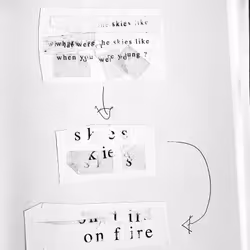 the skies like
what were the skies like
when you were young ?
s k e s
k ie
s
on fire